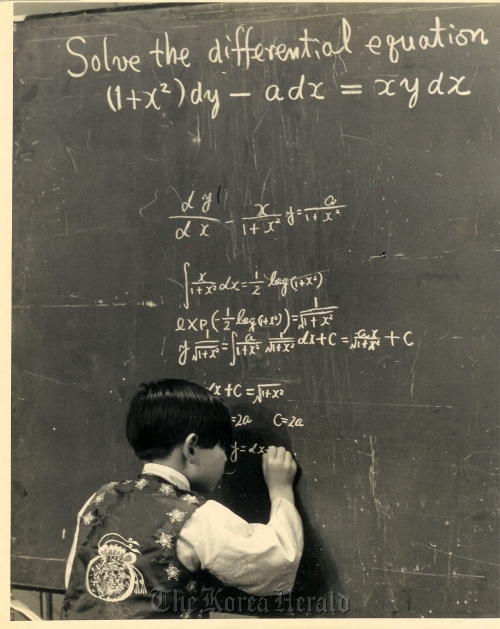 Solve the differential equation
(1+x²)dy − adx = xydx
dy/dx − x/(1+x²) y = a/(1+x²)
∫ x/(1+x²) dx = 1/2 log(1+x²)
exp(−1/2 log(1+x²)) = 1/√(1+x²)
y 1/√(1+x²) = ∫ a/(1+x²) 1/√(1+x²) dx + C = ax/√(1+x²) + C
x+C = √(1+x²)
=2a C=2a
y=
The Korea Herald